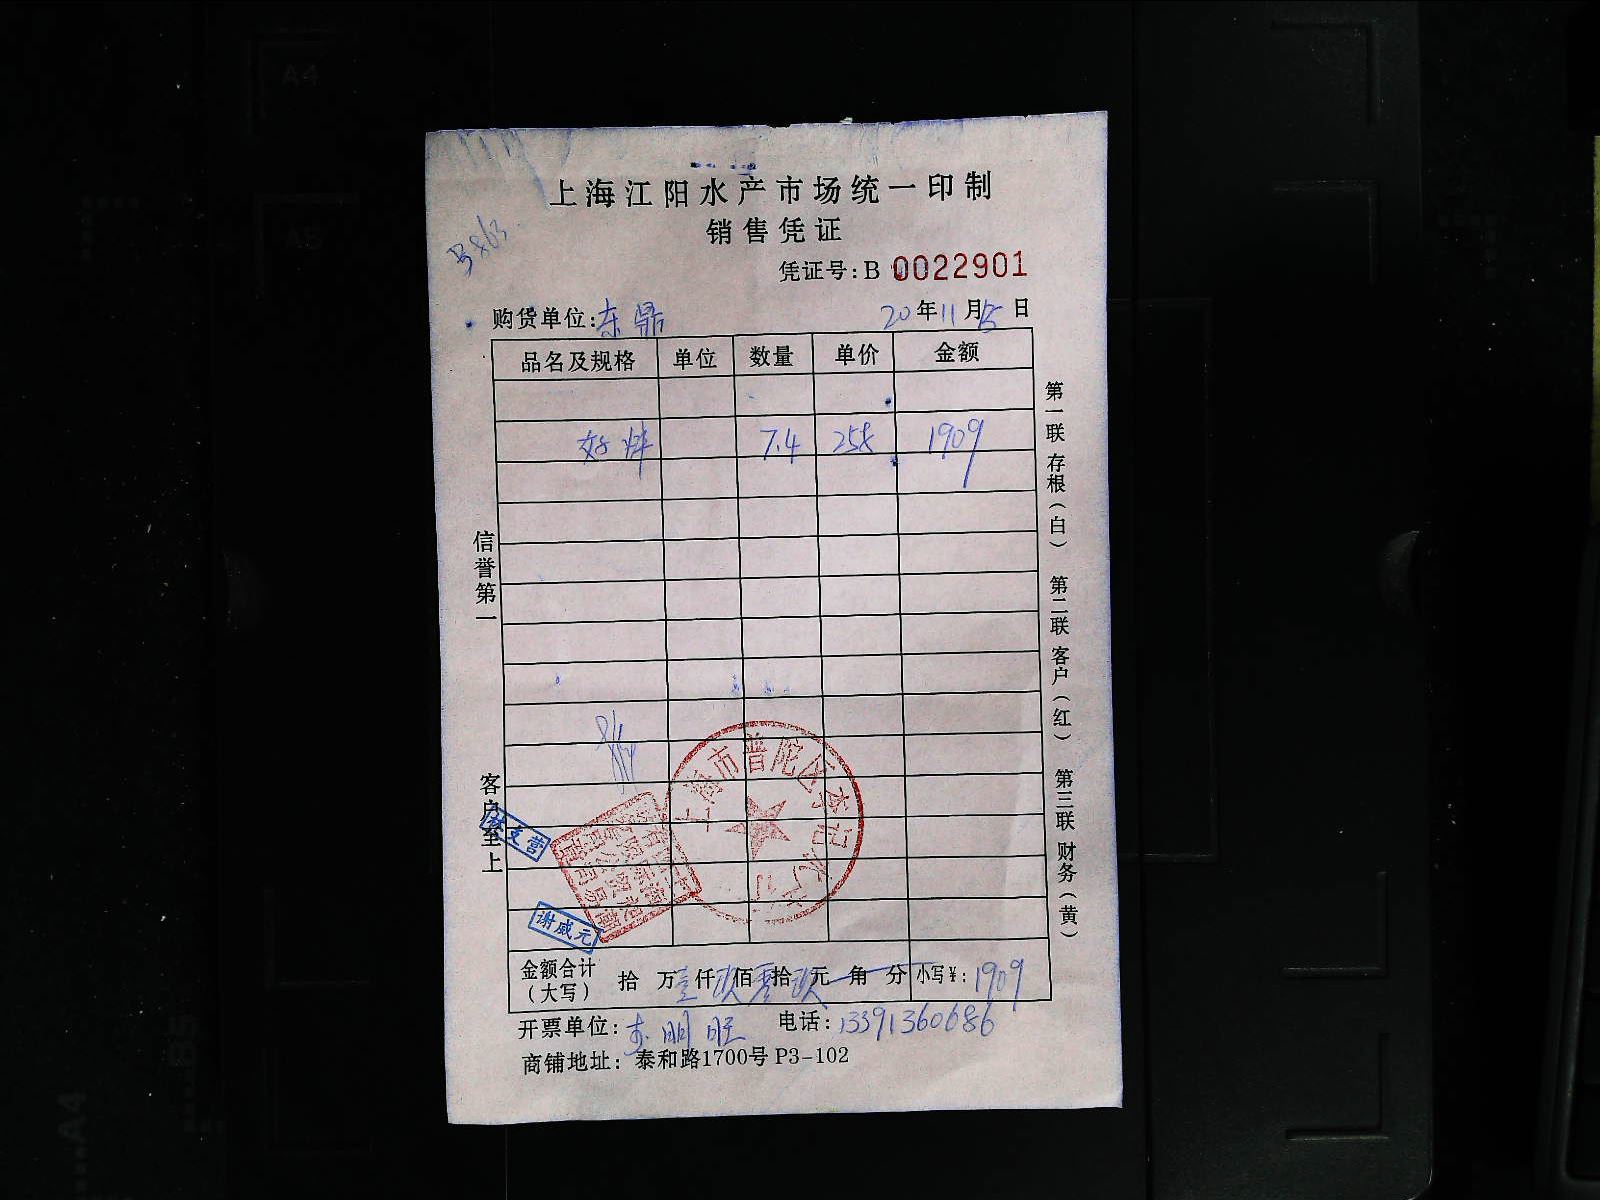 上海江阳水产市场统一印制
销售凭证
凭证号:B 0022901
购货单位:东鼎 20年11月15日
品名及规格 单位 数量 单价 金额
7.4 258 1909
信誉第一
客户至上
第一联 存根(白) 第二联 客户(红) 第三联 财务(黄)
上海市普陀区李记水产
谢威元
金额合计(大写) 拾 万壹仟玖佰零拾玖元 角 分 小写¥:1909
开票单位: 电话:13391360686
商铺地址: 泰和路1700号 P3-102